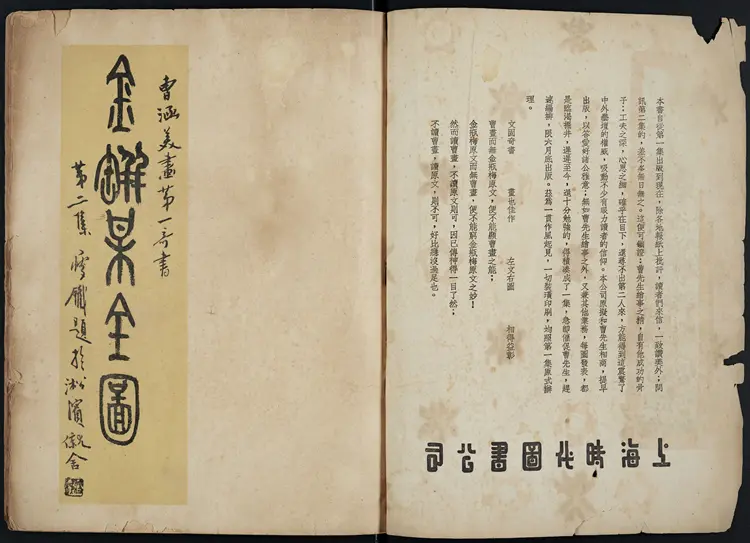 曹涵美畫第一奇書
金瓶某全圖
第二集 題於淞濱 舍
本書自從第一集出版到現在,除各地報紙上批評,讀者們來信,一致讚美外;問
訊第二集的,差不多無日無之。這便可顯證:曹先生繪事之精,自有他成功的骨
子:工夫之深,心思之細,確乎在目下,還尋不出第二人來,方能得到這震驚了
中外藝壇的權威,吸動不少有吸力讀者的信仰。本公司原擬和曹先生相商,提早
出版,以答愛好諸公雅意;無如曹先生繪事之外,又兼其他業務,每圖發表,都
是臨渴掘井,遲遲至今,還十分勉強的,得積湊成了一集,急卽催促曹先生,趕
速編排,限六月底出版。茲為一貫作風起見,一切裝璜印刷,均照第一集原式辦
理。
文固奇書 畫也佳作 左文右圖 相得益彰
曹畫而無金瓶梅原文,便不能顯曹畫之能;
金瓶梅原文而無曹畫,便不能窮金瓶梅原文之妙!
然而讀曹畫,不讀原文則可,因已傳神得一目了然;
不讀曹畫,讀原文,則不可,好比癮沒過足也。
上海時代圖書公司